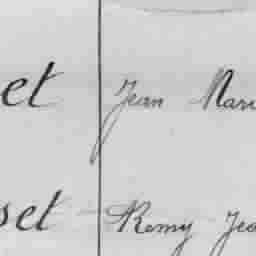 et Jean Mari
set Remy Jea